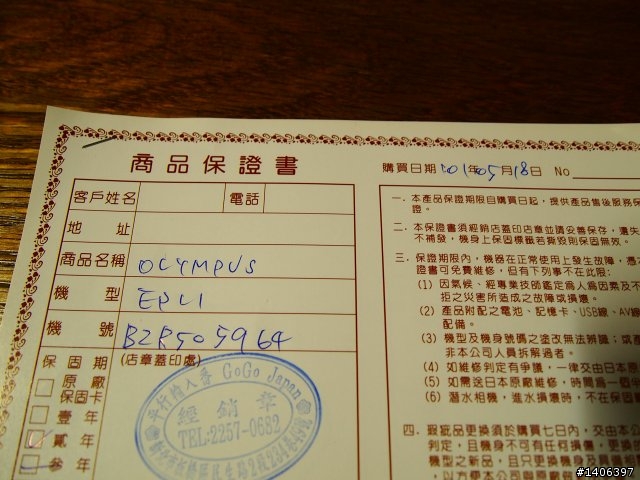 商品保證書
購買日期 201年05月18日 No
客戶姓名 電話
地址
商品名稱 OLYMPUS
機型 EPL1
機號 B2R505964
保固期 (店章蓋印處)
原廠保固卡
壹年
貳年
參年
平行輸入番 GoGo Japan
經銷章
TEL:2257-0682
一. 本產品保證期限自購買日起, 提供產品售後服務保
證。
二. 本保證書須經銷店蓋印店章並請妥善保存, 遺失
不補發, 機身上保固標籤若撕毀則保固無效。
三. 保證期限內, 機器在正常使用上發生故障, 憑本
證書可免費維修, 但有下列事不在此限:
(1) 因氣候、經專業技師鑑定為人為因素及不
拒之災害所造成之故障或損壞。
(2) 產品附配之電池、記憶卡、USB線、AV線
配備。
(3) 機型及機身號碼之塗改無法辨識; 或產
非本公司人員拆解過者。
(4) 如維修判定有爭議, 一律交由日本原
(5) 如需送日本原廠維修, 時間為一個半
(6) 潛水相機, 進水損壞時, 不在保固
四. 瑕疵品更換須於購買七日內, 交由本公
判定, 且機身不可有任何損傷, 更換
機型之新品, 且只更換機身
以方便本公司與原廠
#1406397